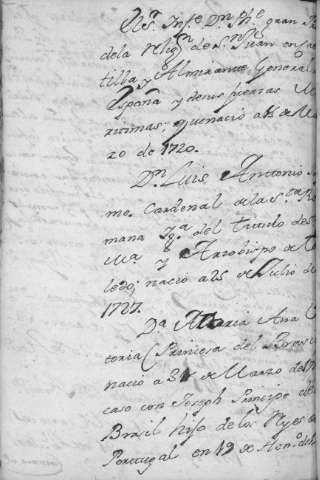 Ssr. Infe. Dn. Phe. gran
dela Relign. de Sn. Juan en Cas
tilla, y Almirante General
España y demas fuerzas Ma
ritimas; que nacio a 15 de Mar
zo de 1720.
Dn. Luis, Antonio
mo. Cardenal de la Sta. Ro
mana Iga. del titulo de S
Ma. y Arzobispo de To
ledo; nacio a 25 de Julio de
1727.
Da. Maria Ana Vic
toria (Princesa del Brasil
nacio a 31 de Marzo del
caso con Joseph Principe del
Brasil hijo de los Reyes de
Portugal en 19 de Heno. de